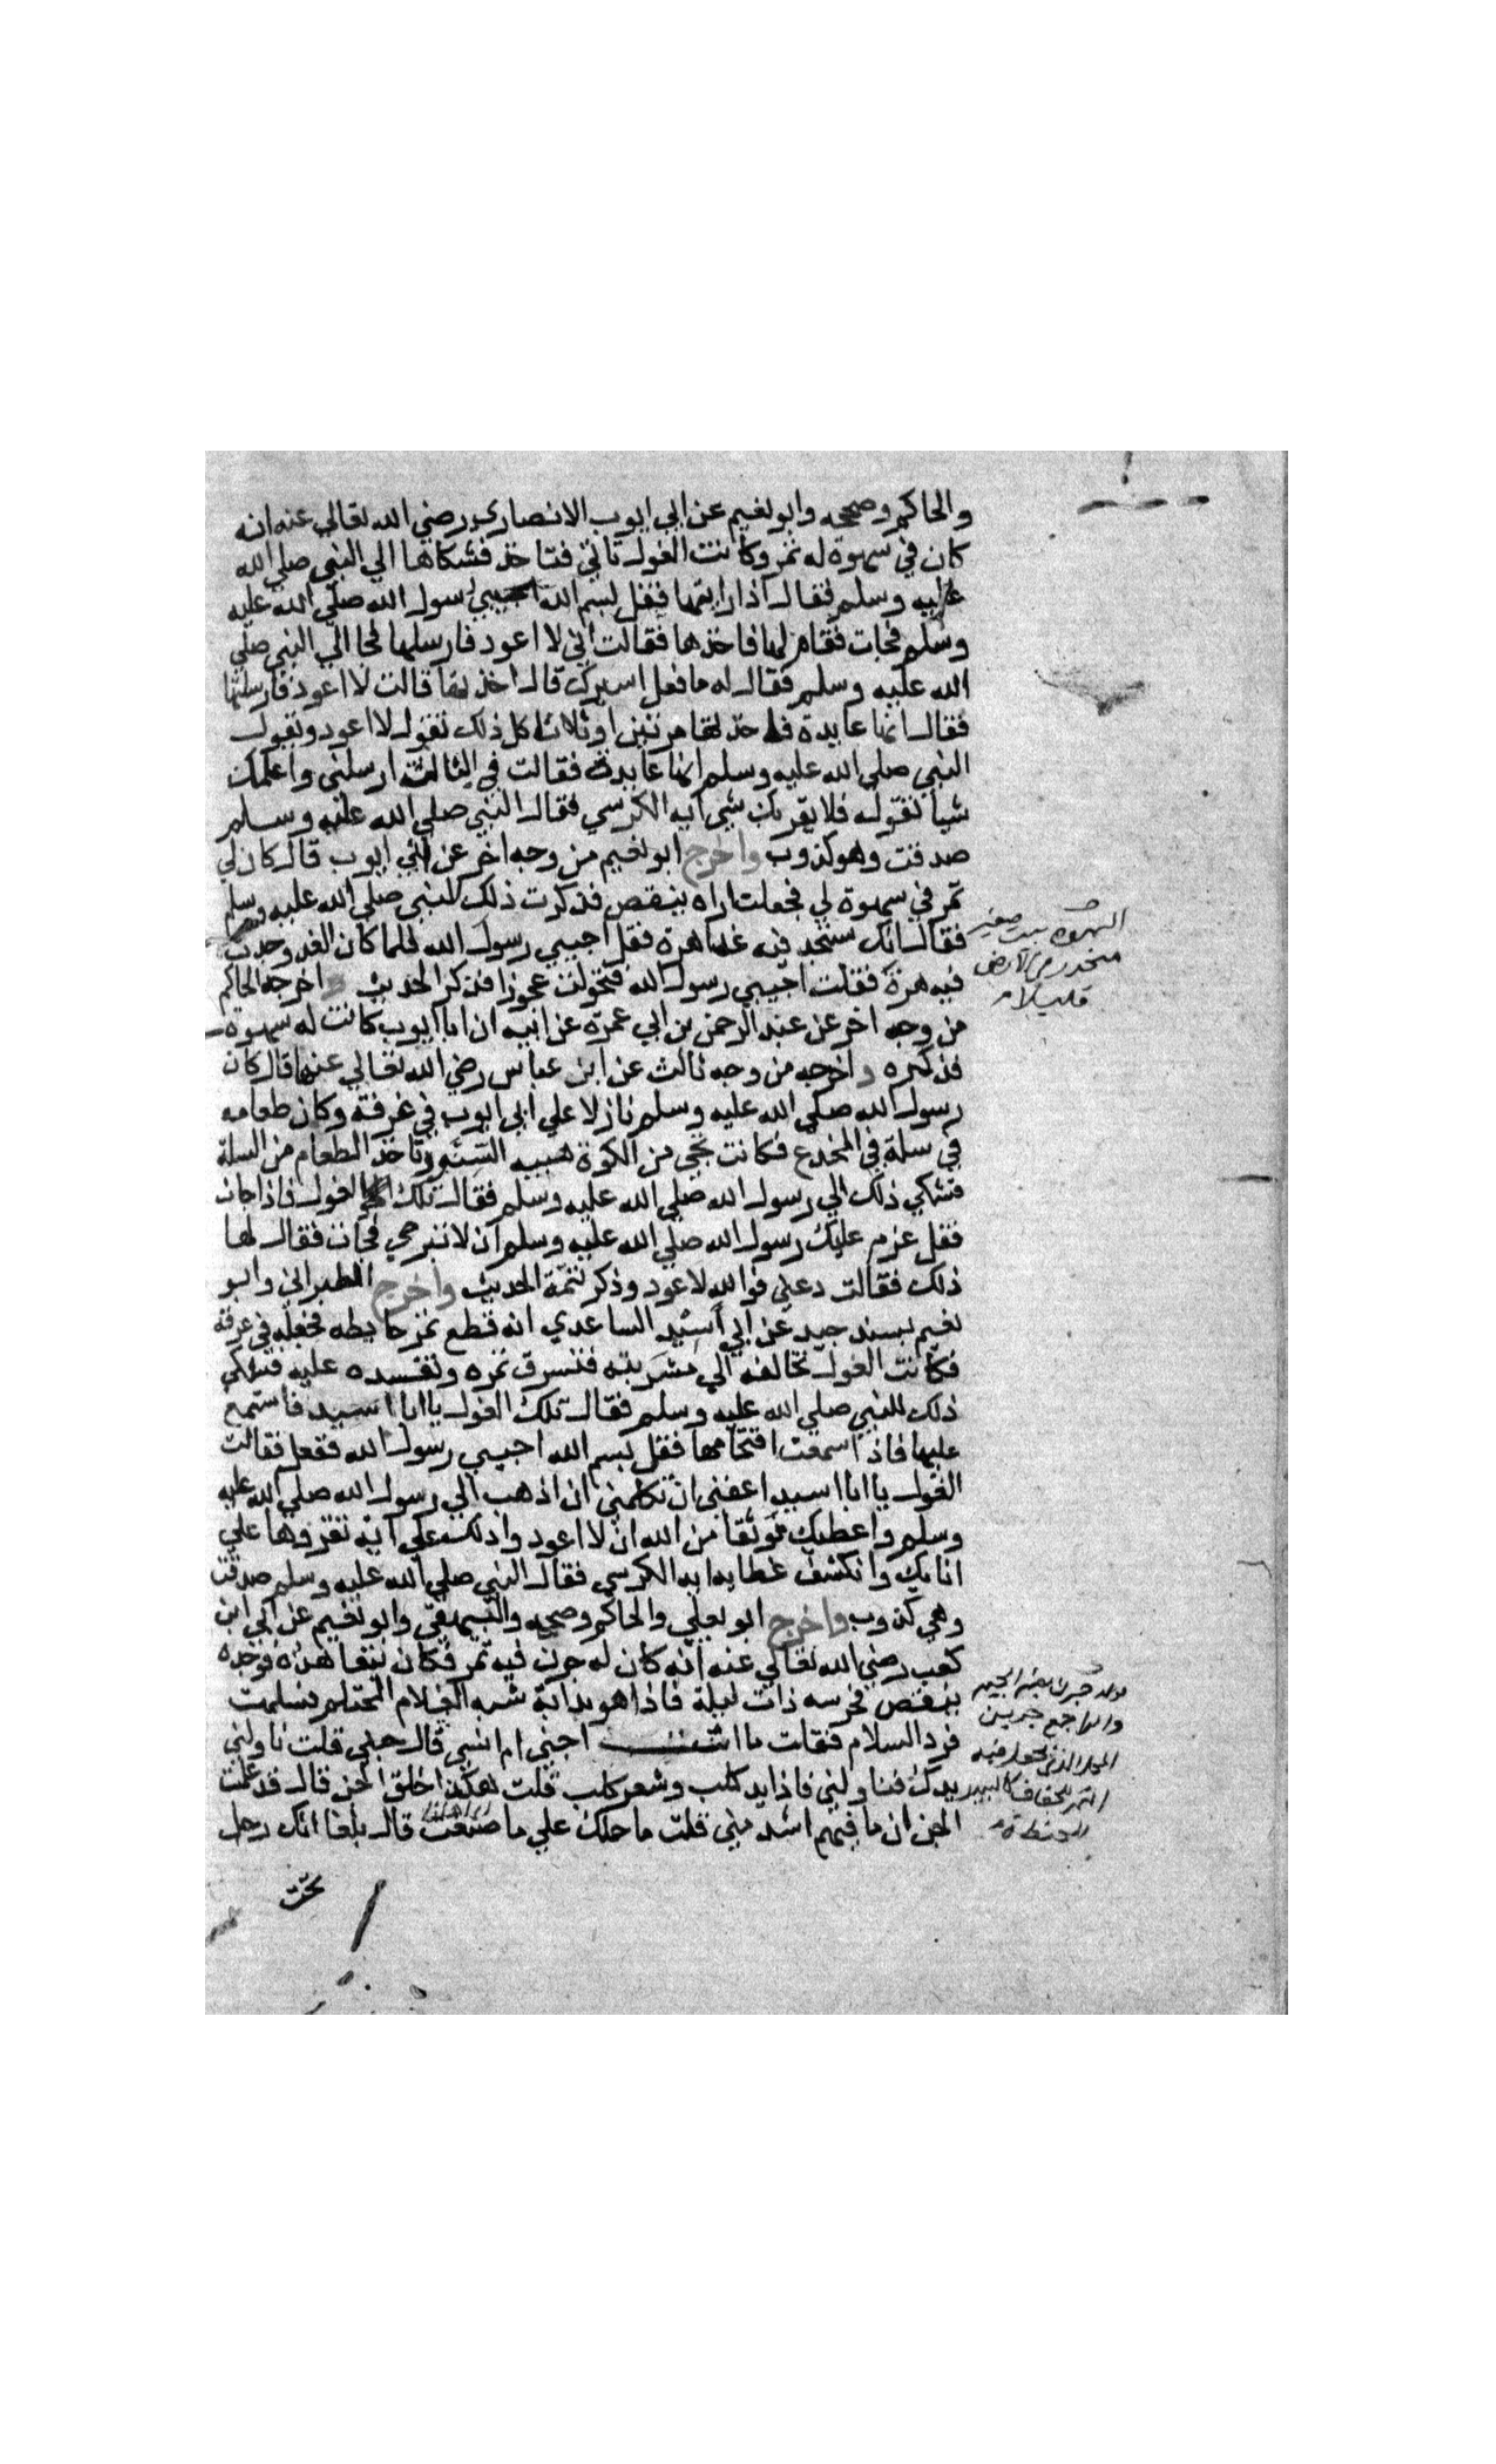 والحاكم وصححه وابو نعيم عن ابي ايوب الانصاري رضي الله تعالي عنه انه
كان في سهوة له تمر وكانت الغول تاتي فتاخذ فشكاها الي النبي صلي الله
عليه وسلم فقال اذا رايتها فقل بسم الله اجيبي رسول الله صلي الله عليه
وسلم فجات فقام لها فاخذها فقالت اني لا اعود فارسلها فجا الي النبي صلي
الله عليه وسلم فقال له ما فعل اسيرك قال اخذتها قالت لا اعود فارسلتها
فقال انها عايدة فاخذتها مرتين او ثلاثا كل ذلك تقول لا اعود ويقول
النبي صلي الله عليه وسلم انها عايدة فقالت في الثالثة ارسلني واعلمك
شيا تقوله فلا يقربك شي اية الكرسي فقال النبي صلي الله عليه وسلم
صدقت وهو كذوب واخرج ابو نعيم من وجه اخر عن ابي ايوب قال كان لي
تمر في سهوة لي فجعلت اراه ينقص فذكرت ذلك للنبي صلي الله عليه وسلم
فقال انك ستجد فيه غدا هرة فقل اجيبي رسول الله فلما كان الغد وجدت
فيه هرة فقلت اجيبي رسول الله فتحولت عجوزا فذكر الحديث واخرجه الحاكم
من وجه اخر عن عبد الرحمن بن ابي عمرة عن ابيه ان ابا ايوب كانت له سهوة
فذكره واخرجه من وجه ثالث عن ابن عباس رضي الله تعالي عنهما قال كان
رسول الله صلي الله عليه وسلم نازلا علي ابي ايوب في غرفة وكان طعامه
في سلة في المخدع فكانت تجي من الكوة هيية السنور تاخذ الطعام من السلة
فشكي ذلك الي رسول الله صلي الله عليه وسلم فقال تلك الغول فاذا جات
فقل عزم عليك رسول الله صلي الله عليه وسلم ان لا تبرحي فجات فقال لها
ذلك فقالت دعني فوالله لا اعود وذكر تتمة الحديث واخرج الطبراني وابو
نعيم بسند جيد عن ابي اسيد الساعدي انه قطع تمر حايطه فجعله في غرفة
فكانت الغول تخالفه الي مشربته فتسرق تمره وتفسده عليه فشكي
ذلك للنبي صلي الله عليه وسلم فقال تلك الغول يا ابا اسيد فاستمع
عليها فاذا سمعت اقتحامها فقل بسم الله اجيبي رسول الله ففعل فقالت
الغول يا ابا اسيد اعفني ان تكلمني ان اذهب الي رسول الله صلي الله عليه
وسلم واعطيك موثقا من الله ان لا اعود وادلك علي اية تقروها علي
انايك وانكشف غطايه اية الكرسي فقال النبي صلي الله عليه وسلم صدقت
وهي كذوب واخرج ابو يعلي والحاكم وصححه والبيهقي وابو نعيم عن ابي ابن
كعب رضي الله تعالي عنه انه كان له جرن فيه تمر فكان يتعاهده فوجده
ينقص فحرسه ذات ليلة فاذا هو بدابة شبه الغلام المحتلم فسلمت
فرد السلام فقلت ما انت اجني ام انسي قال جني قلت ناولني
يدك فناولني فاذا يد كلب وشعر كلب قلت هكذا خلق الجن قال قد علمت
الجن ان ما فيهم اشد مني قلت ما حملك علي ما صنعت قال بلغنا انك رجل
السهوة بيت صغير
منحدر في الارض
قليلا
قوله جرن بضم الجيم
والراجع جرين
المحل الذي يجعل فيه
التمر للجفاف كالبيدر
للحنطة